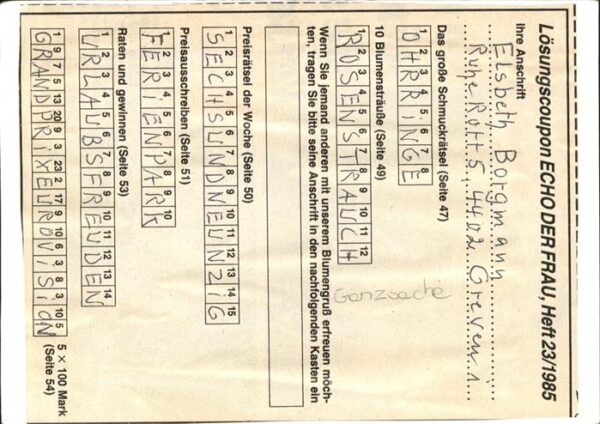 Lösungscoupon ECHO DER FRAU, Heft 23/1985
Ihre Anschrift
Elsbeth Borgmann
Ruhe Rott 5, 4402 Greven 1
Das große Schmuckrätsel (Seite 47)
1 2 3 4 5 6 7 8
OHRRINGE
10 Blumensträuße (Seite 49)
1 2 3 4 5 6 7 8 9 10 11 12
ROSENSTRAUCH
Ganzsache
Wenn Sie jemand anderen mit unserem Blumengruß erfreuen möch-
ten, tragen Sie bitte seine Anschrift in den nachfolgenden Kasten ein
Preisrätsel der Woche (Seite 50)
1 2 3 4 5 6 7 8 9 10 11 12 13 14 15
SECHSUNDNEUNZIG
Preisausschreiben (Seite 51)
1 2 3 4 5 6 7 8 9 10
FERIENPARK
Raten und gewinnen (Seite 53)
1 2 3 4 5 6 7 8 9 10 11 12 13 14
URLAUBSFREUDEN
1 9 7 5 13 20 9 3 23 2 17 9 10 6 3 8 3 10 5
GRANDPRIXEUROVISION
5 × 100 Mark
(Seite 54)